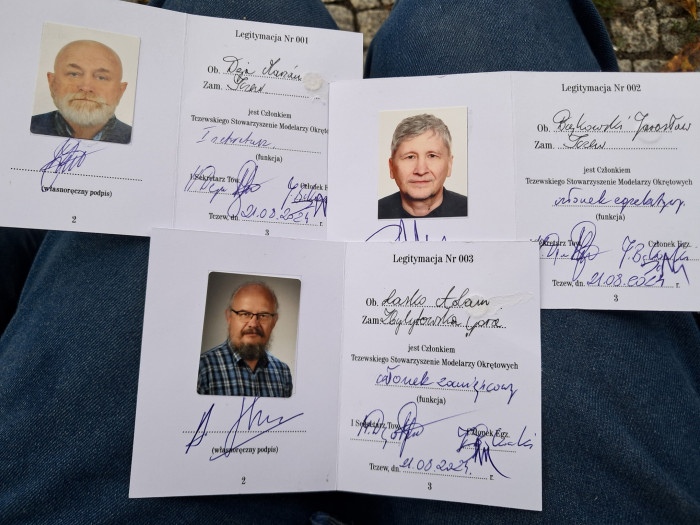 Legitymacja Nr 001
Ob. Deja Marian
Zam. Tczew
jest Członkiem
Tczewskiego Stowarzyszenie Modelarzy Okrętowych
I sekretarz
(funkcja)
I Sekretarz Tow.
Członek
Tczew, dn. 21.08.2024 r.
(własnoręczny podpis)
2
3
Legitymacja Nr 002
Ob. Bątkowski Jarosław
Zam. Tczew
jest Członkiem
Tczewskiego Stowarzyszenie Modelarzy Okrętowych
członek
(funkcja)
Sekretarz Tow.
Członek Egz.
Tczew, dn. 21.08.2024 r.
3
Legitymacja Nr 003
Ob. Lasko Adam
Zam. Zbylitowska Góra
jest Członkiem
Tczewskiego Stowarzyszenie Modelarzy Okrętowych
członek zamiejscowy
(funkcja)
I Sekretarz Tow.
Członek Egz.
Tczew, dn. 21.08.2024 r.
(własnoręczny podpis)
2
3